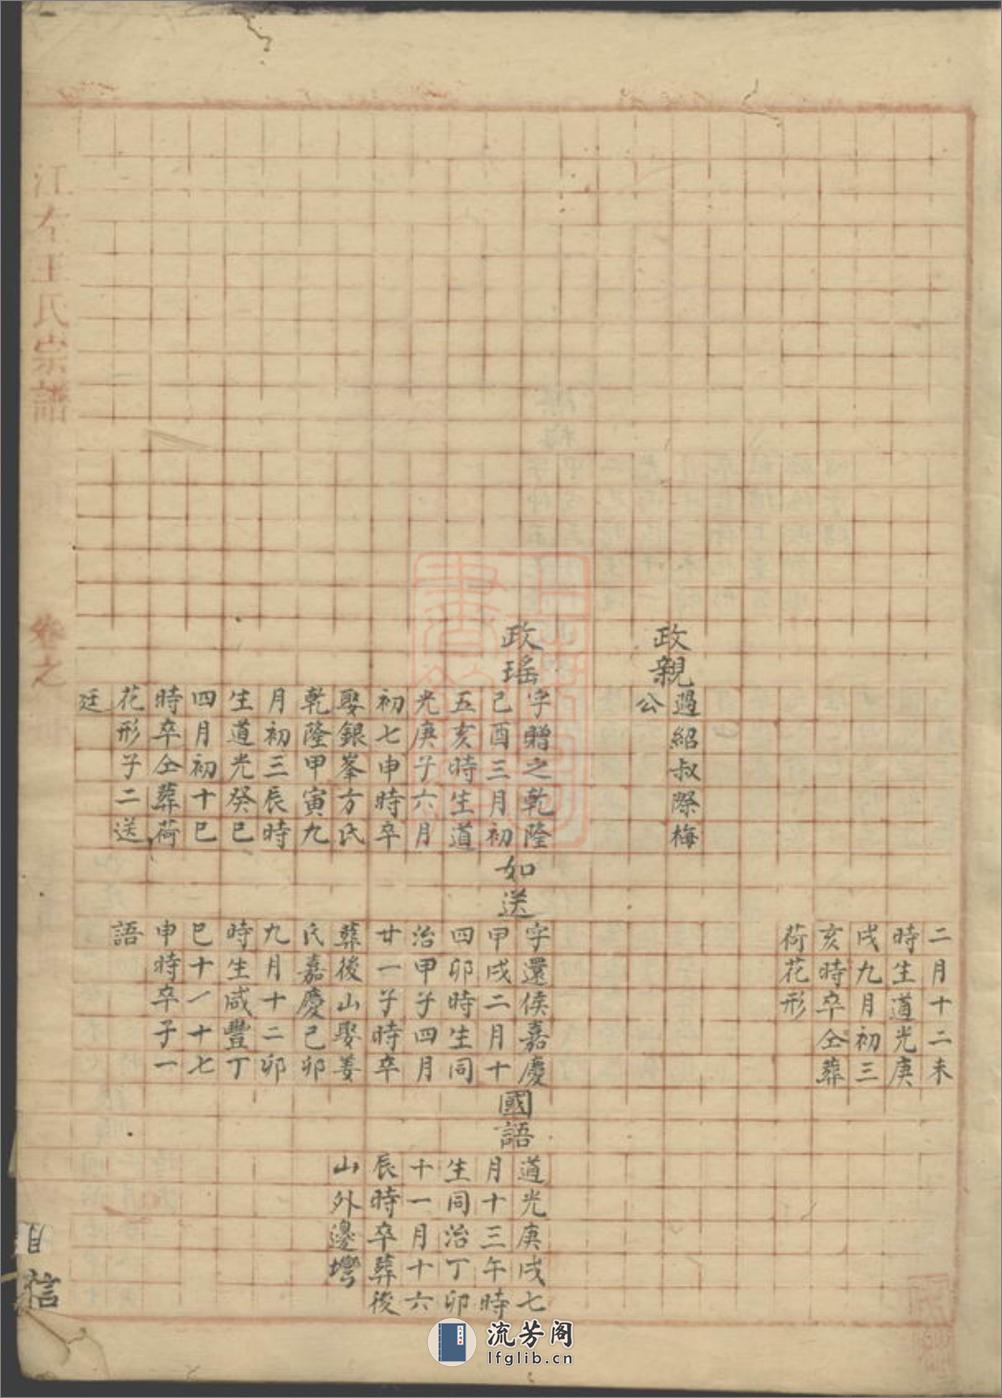 二月十二未
時生道光庚
戌九月初三
亥時卒仝葬
荷花形
政親
過紹叔際梅
公
政瑤
字贈之乾隆
己酉三月初
五亥時生道
光庚子六月
初七申時卒
娶銀峯方氏
乾隆甲寅九
月初三辰時
生道光癸巳
四月初十巳
時卒仝葬荷
花形子二送
廷
如送
字還侯嘉慶
甲戌二月十
四卯時生同
治甲子四月
廿一子時卒
葬後山娶姜
氏嘉慶己卯
九月十二卯
時生咸豐丁
巳十一十七
申時卒子一
語
國語
道光庚戌七
月十三午時
生同治丁卯
十一月十六
辰時卒葬後
山外邊塆
江左王氏宗譜
卷之
流芳阁
lfglib.cn